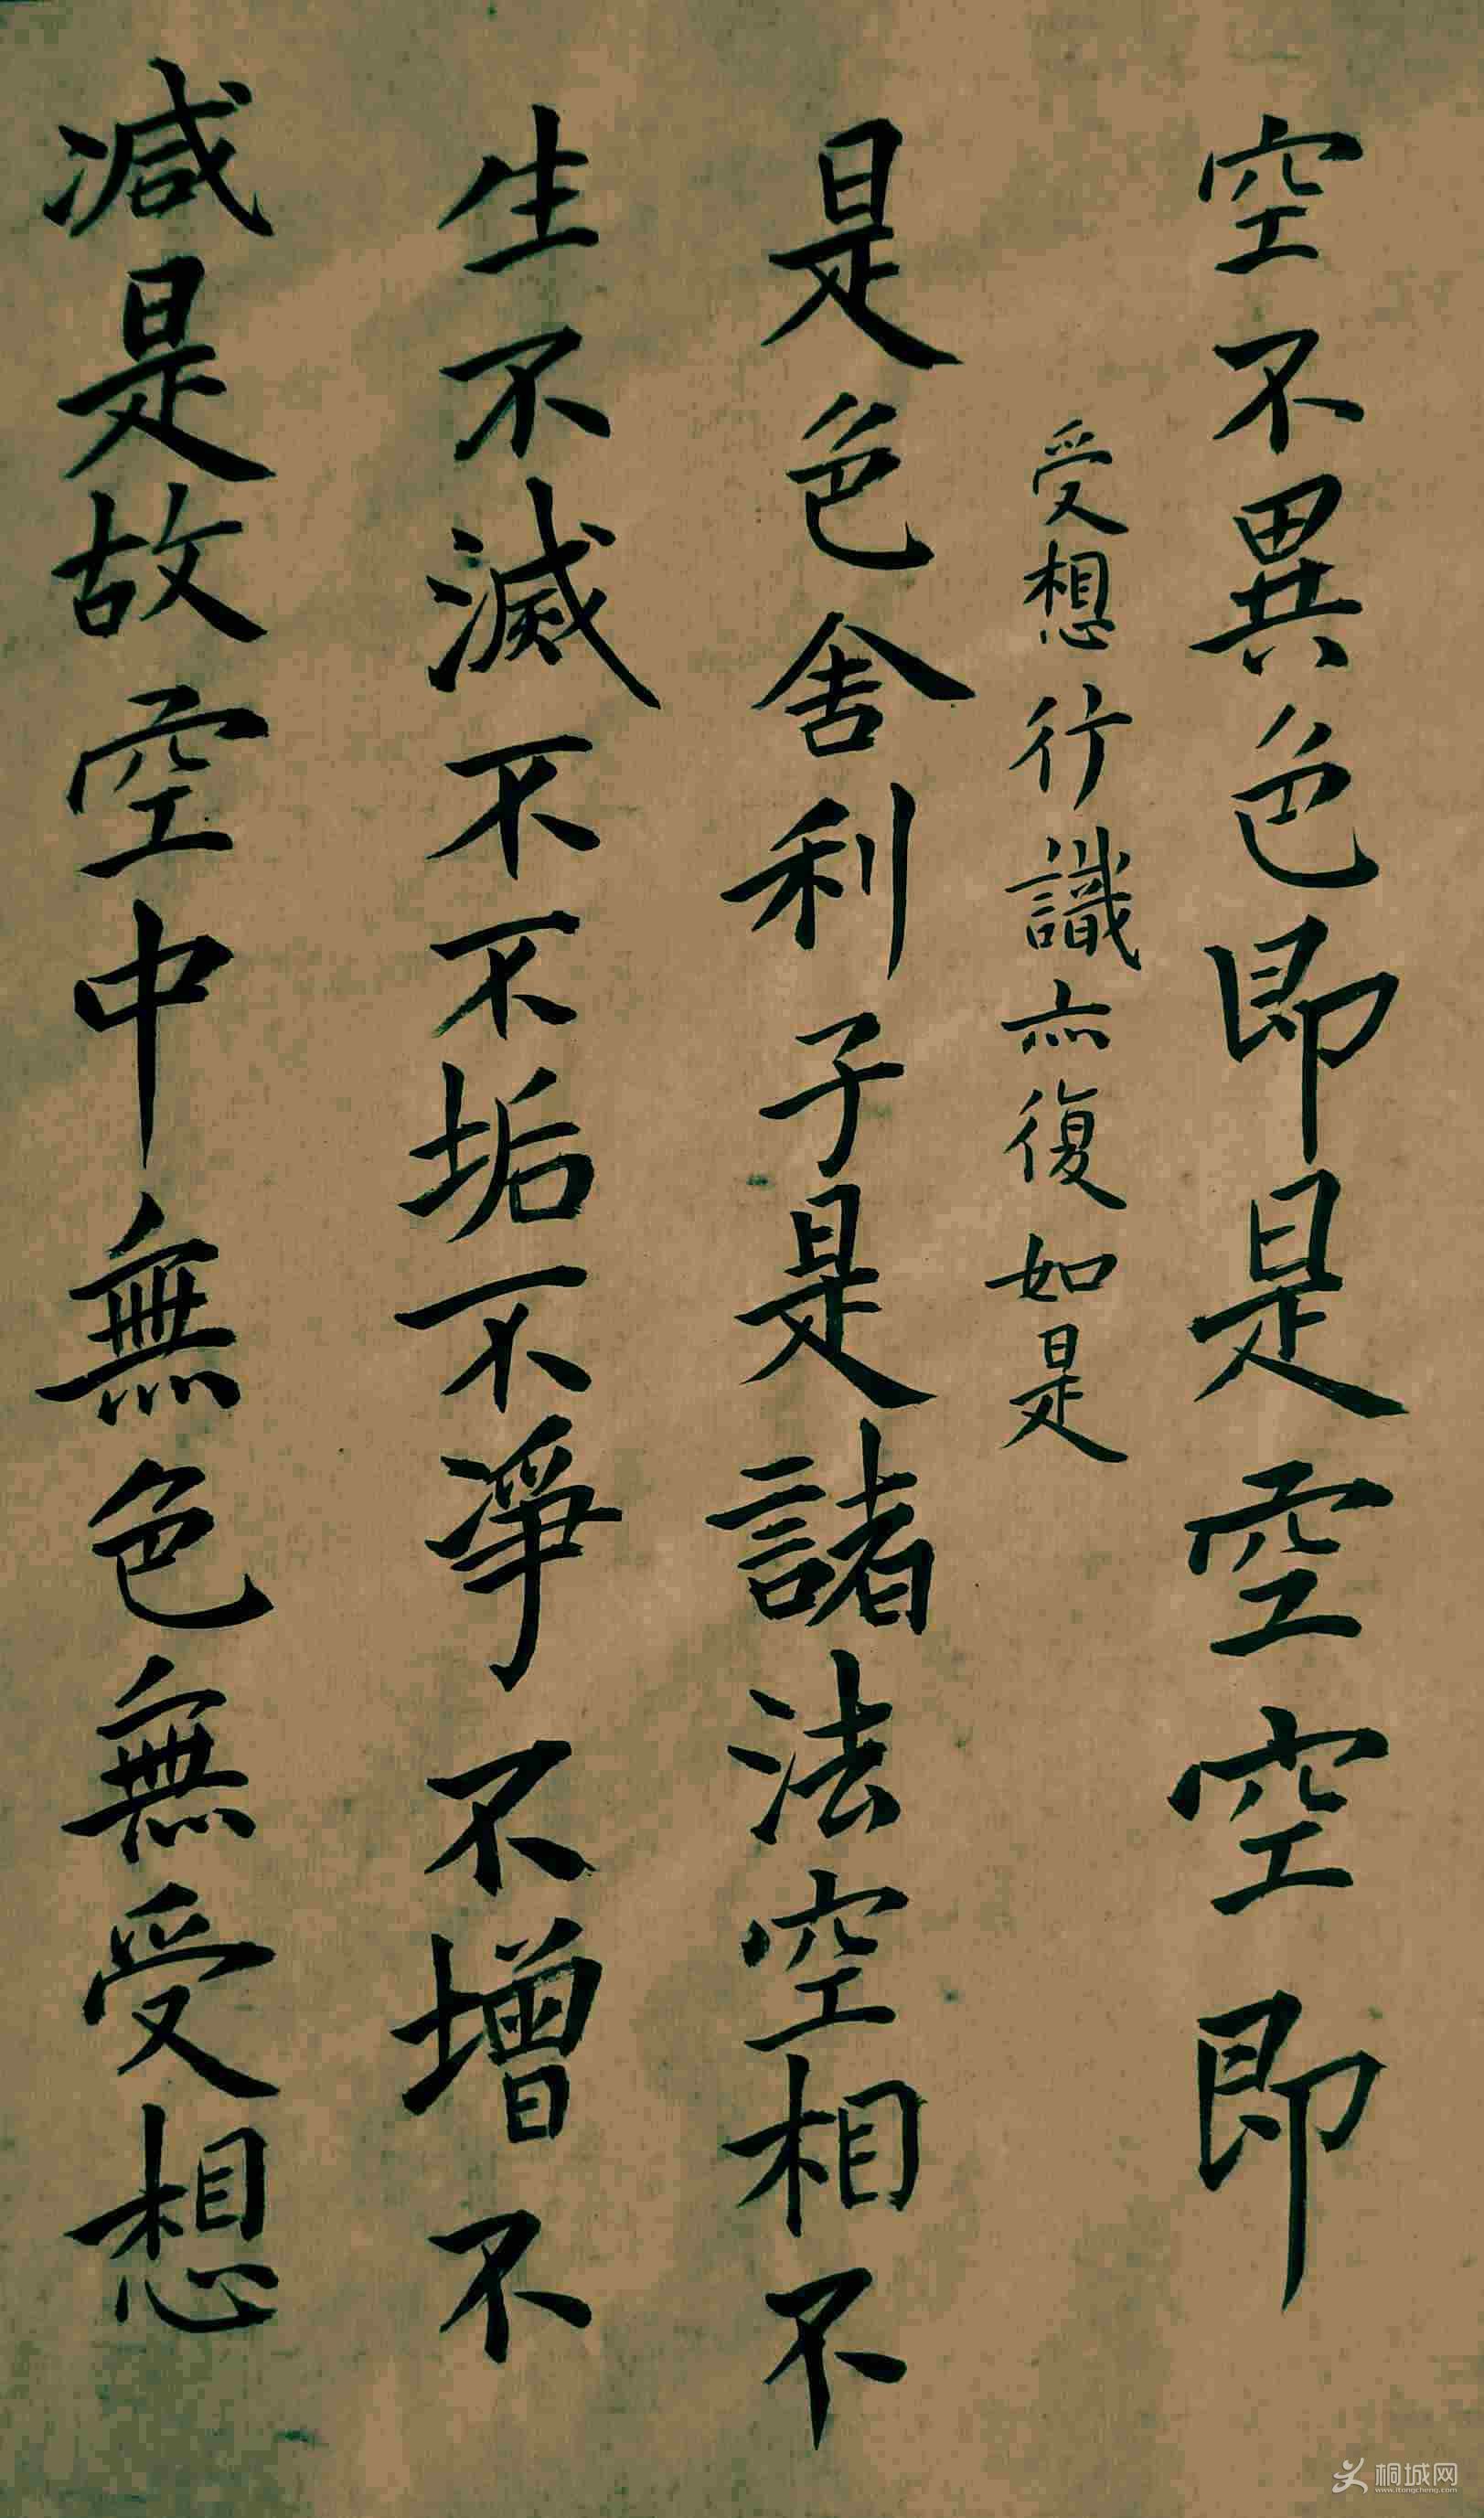 空不異色色即是空空即
受想行識亦復如是
是色舍利子是諸法空相不
生不滅不不垢不淨不增不
减是故空中無色無受想
桐城网
www.itongcheng.com